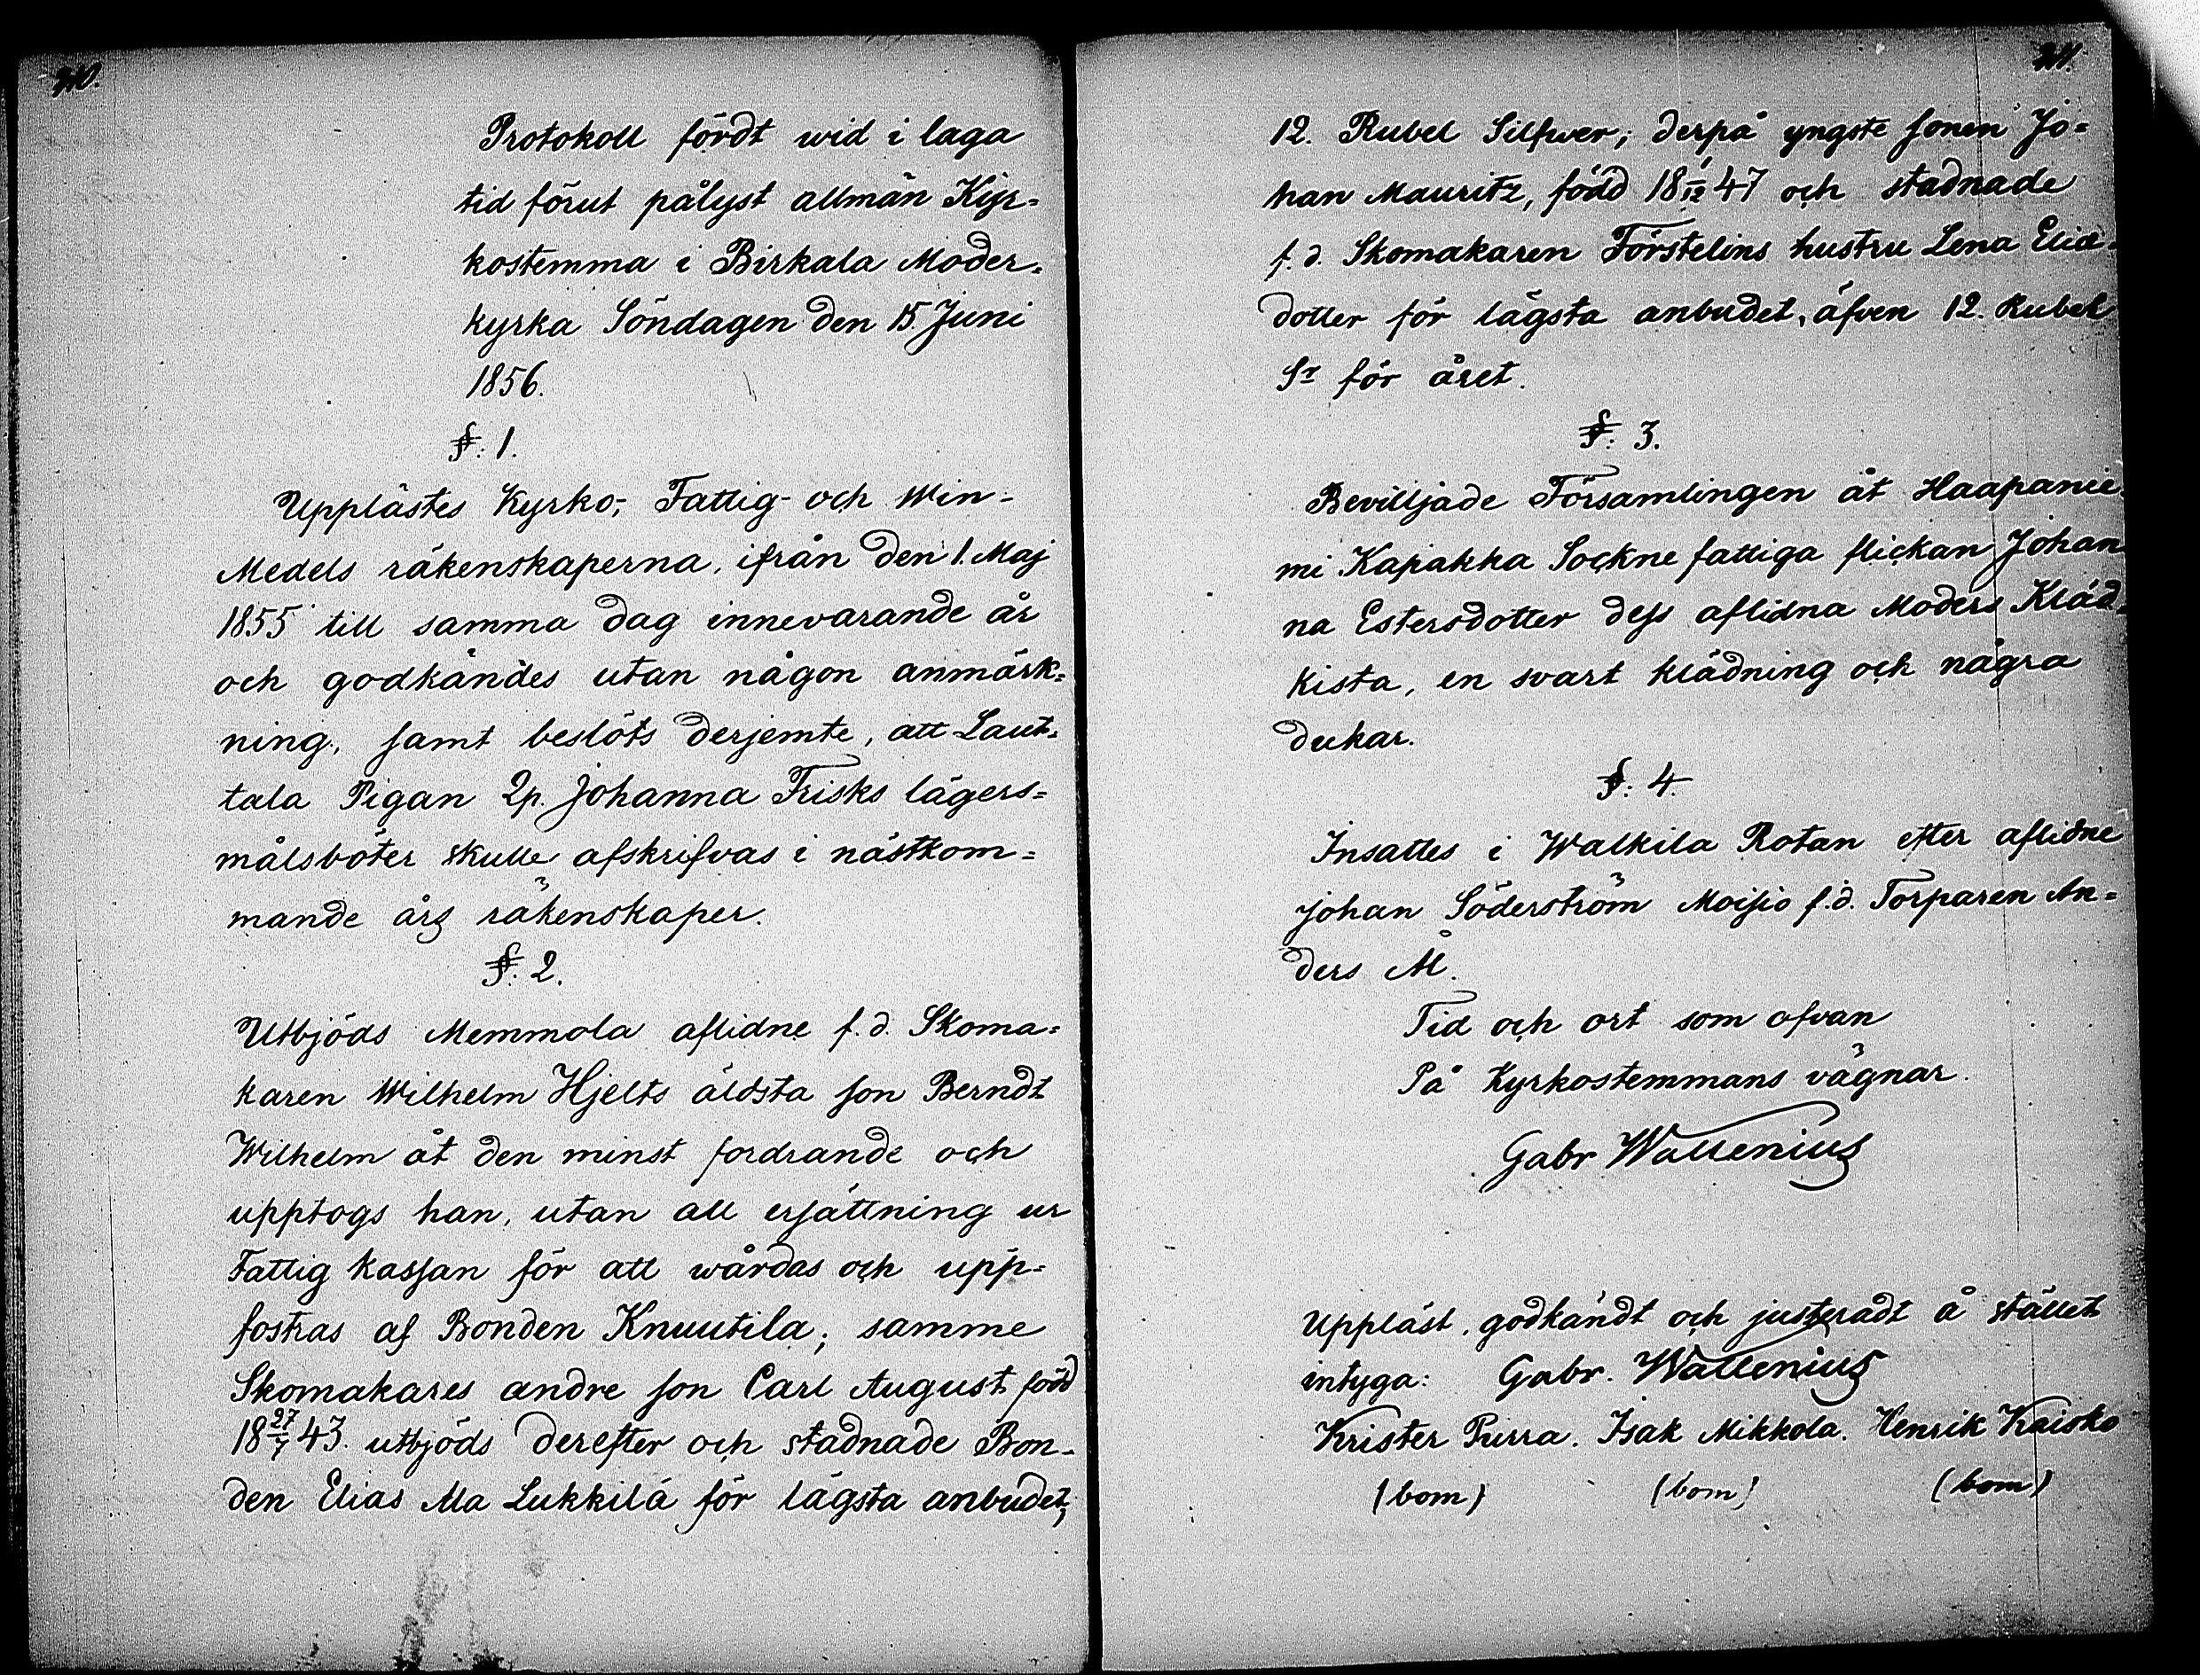 210.
Protokoll fördt wid i laga
tid förut pålyst allmän Kyr=
kostemma i Birkala Moder=
kyrka Söndagen den 15. Juni
1856.
§: 1.
Upplästes Kyrko-, Fattig- och Win-
Medels räkenskaperna, ifrån den 1. Maj
1855 till samma dag innevarande år
och godkändes utan någon anmärk=
ning, samt beslöts derjemte, att Laut=
tala Pigan 2p. Johanna Frisks lägers=
målsböter skulle afskrifvas i nästkom=
mande års räkenskaper.
§: 2.
Utbjöds Memmola aflidne f. d. Skoma=
karen Wilhelm Hjelts äldsta son Berndt
Wilhelm åt den minst fordrande och
upptogs han, utan all ersättning ur
Fattig kassan för att wårdas och upp=
fostras af Bonden Knuutila; samme
Skomakares andre son Carl August född
18 27/7 43. utbjöds derefter och stadnade Bon-
den Elias Ala Lukkila för lägsta anbudet,
211.
12. Rubel Silfwer; derpå yngste sonen Jo=
han Mauritz, född 18 1/12 47 och stadnade
f. d. Skomakaren Förstelins hustru Lena Elias=
dotter för lägsta anbudet, äfven 12. Rubel
Sr för året.
§: 3.
Bevilljade Församlingen åt Haapanie
mi Kapakka Sockne fattiga flickan Johan
na Estersdotter dess aflidna Moders Kläd=
kista, en svart klädning och några
dukar.
§: 4.
Insattes i Walkila Rotan efter aflidne
Johan Söderström Moisio f. d. Torparen An=
ders Å.
Tid och ort som ofvan
På Kyrkostemmans vägnar.
Gabr Wallenius
Uppläst, godkändt och justeradt å stället
intyga: Gabr. Wallenius
Krister Purra. Isak Mikkola. Henrik Kaisko
(bom) (bom) (bom)